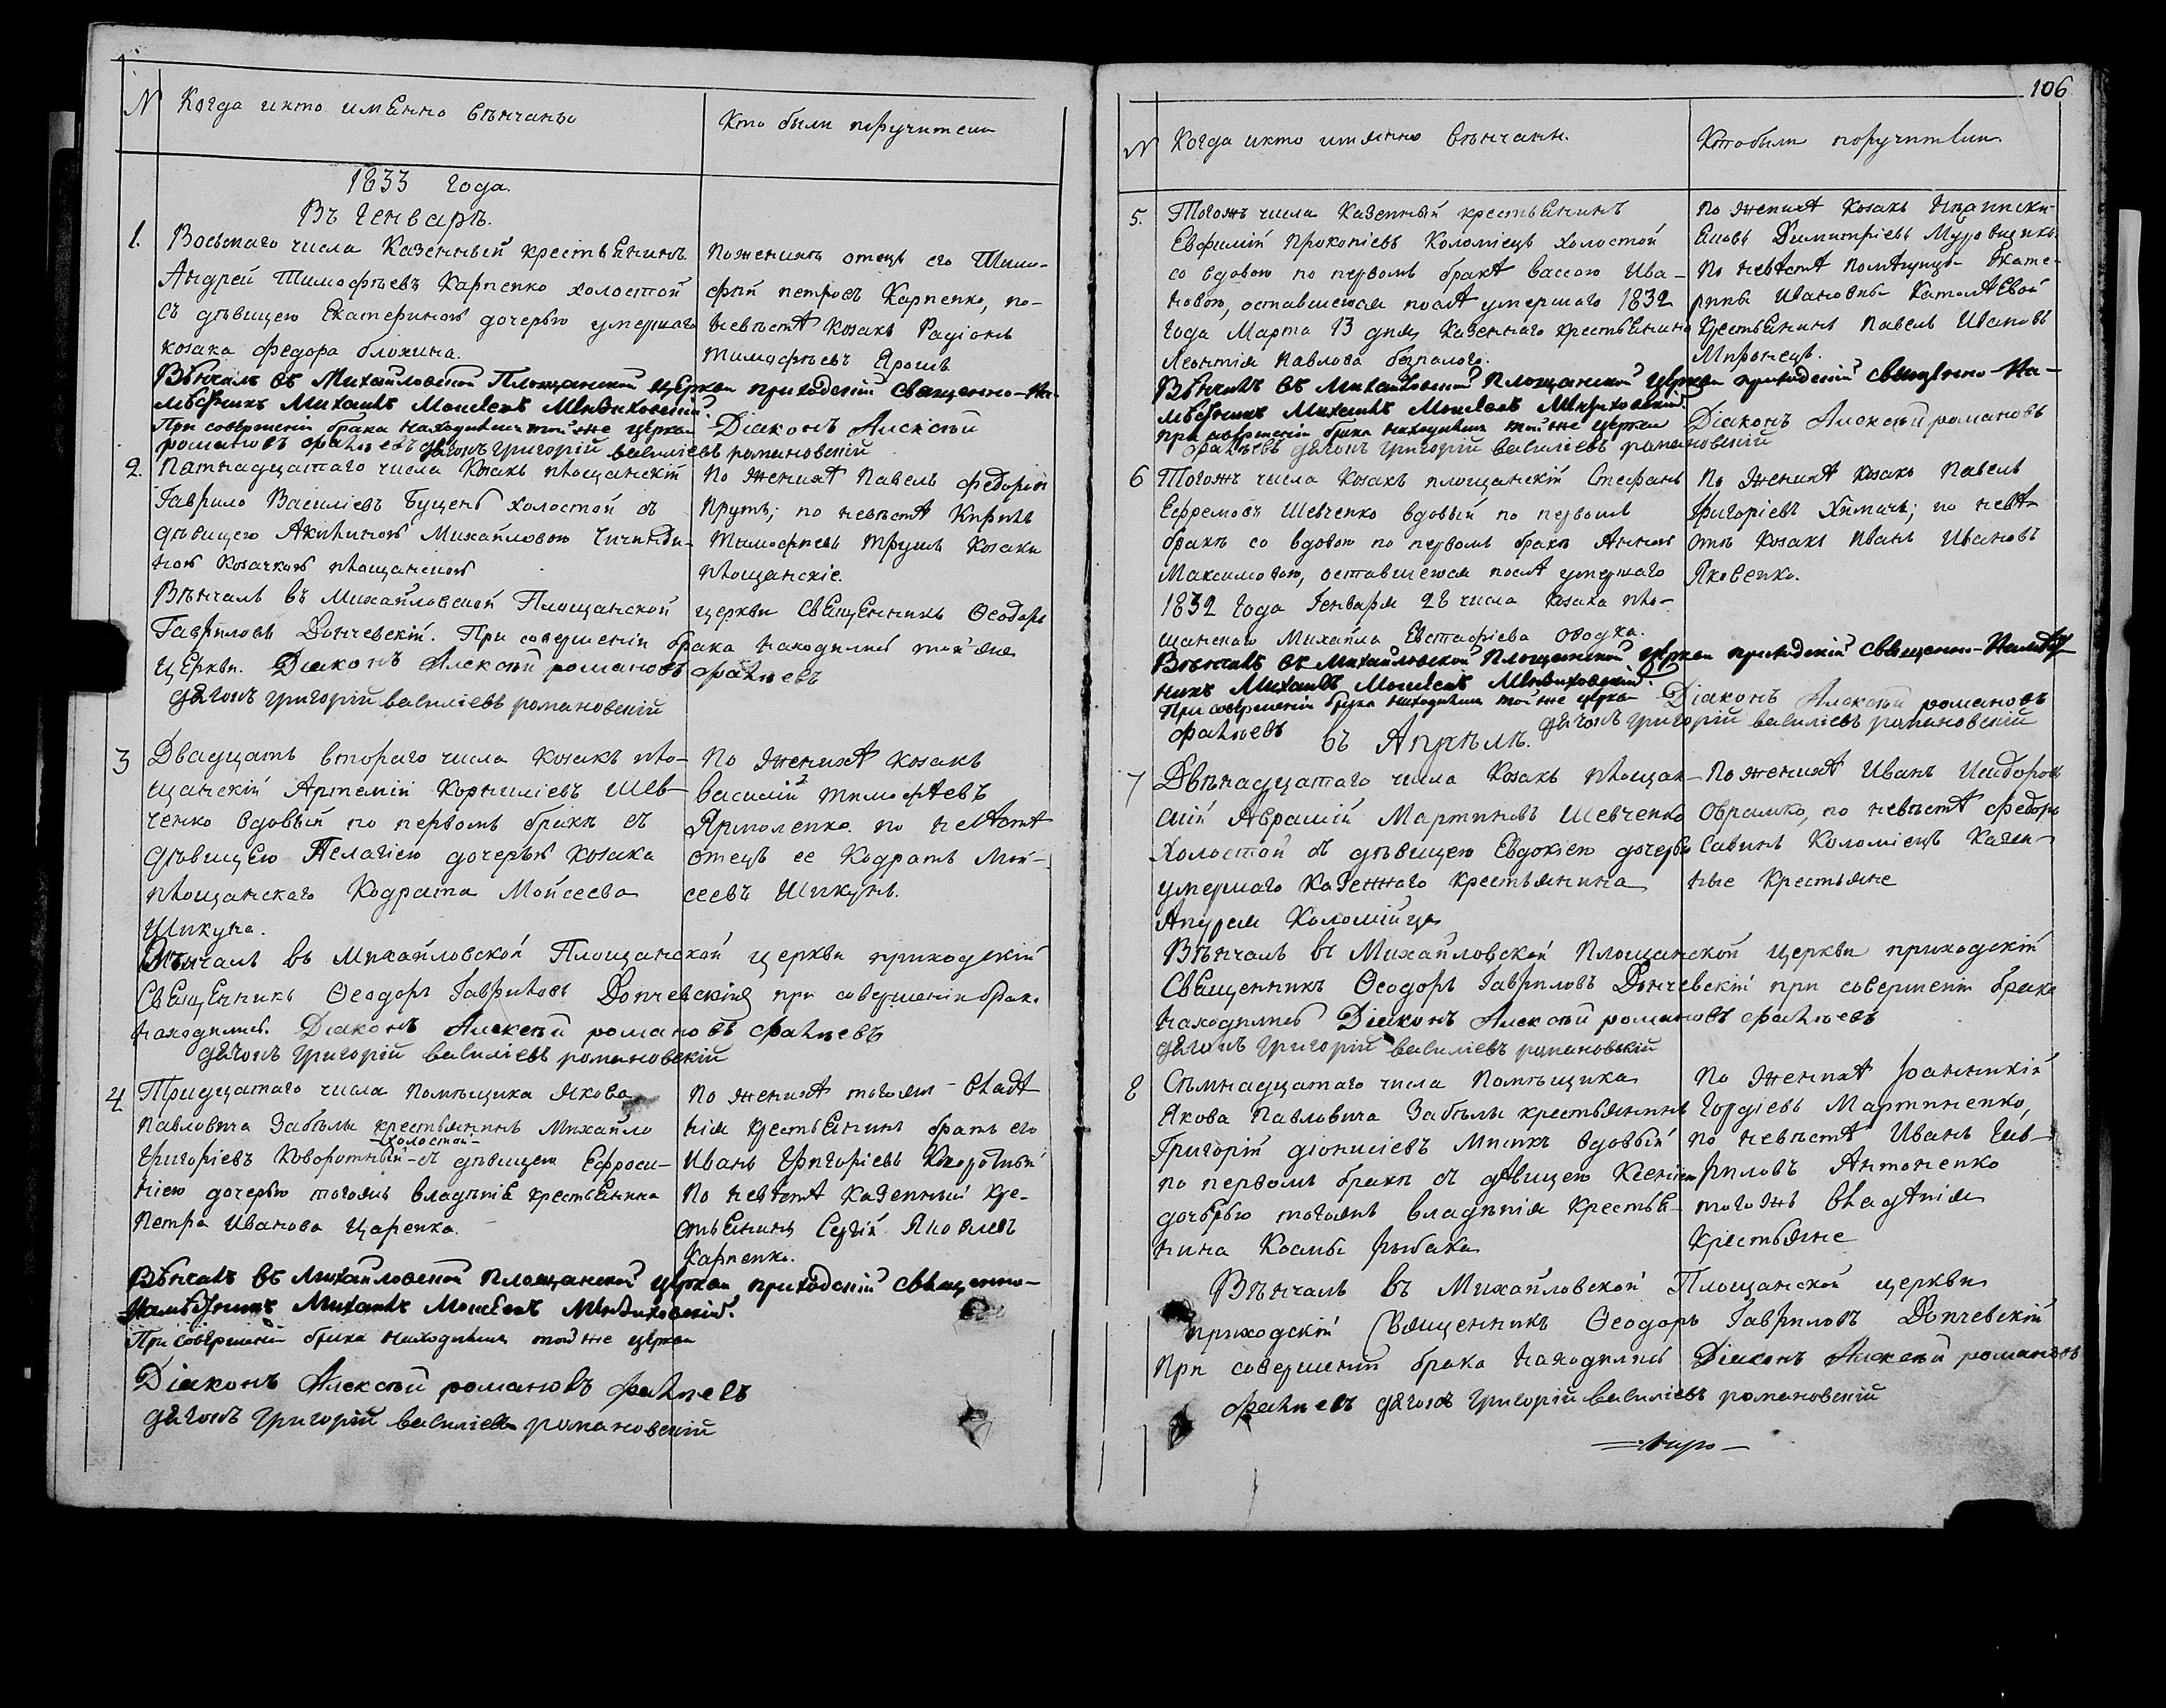 N Когда и кто имЕнно вѣнчаны
Кто были поручители
1833 года.
Въ Генварѣ.
1. Восьмаго числа Казенный крестьЕнинъ
Андрей Тимофѣевъ Карпенко холостой
съ дѣвицею Екатериною дочерью умершаго
козака Федора блохина.
По женихѣ отецъ его Тимо-
фѣй петровъ Карпенко, по-
невѣстѣ Козакъ Радіонъ
тимофѣевъ Ярошъ
Вѣнчалъ въ Михайловской Площанской церкви приходскій Священно-На-
мѣстникъ Михаилъ Моисеевъ
При совершеніи брака находились той же церкви Діаконъ Алексѣй
романовъ дячокъ григорій василіевъ романовскій
2. Пятнадцатаго числа Козакъ площанскій
Гаврило Василіевъ Буценъ холостой съ
дѣвицею Акилиною Михайловою
ною Козачкою площанскою
По женихѣ Павелъ Федоровъ
Прутъ; по невѣстѣ Кирилъ
Тимофѣевъ Трушъ Козаки
площанскіе.
Вѣнчалъ въ Михайловской Площанской церкви СвЕщЕнникъ Ѳеодоръ
Гавриловъ Дончевскій. При совершеніи брака находились той же
церкви. Діаконъ Алексѣй романовъ
дячокъ григорій василіевъ романовскій
3 Двадцать втораго числа Козакъ пло-
щанскій Артемій Корниліевъ Шев-
ченко вдовый по первомъ бракѣ съ
дѣвицЕю Пелагіею дочерью козака
площанскаго Кодрата Мойсеева
Шикуна.
По женихѣ козакъ
василій тимофѣевъ
Ярмоленко. по невѣстѣ
отецъ ее Кодратъ Мой-
сеевъ Шикунъ.
Вѣнчалъ въ Михайловской Площанской церкви приходскій
СвЕщЕнникъ Ѳеодоръ Гавриловъ Дончевскій при совершеніи брака
находились. Діаконъ Алексѣй романовъ
дячокъ григорій василіевъ романовскій
4 Тридцатаго числа Помѣщика якова
Павловича Забѣлы крестьянинъ Михайло
холостой
Григоріевъ Коворотный съ дѣвицею Ефроси-
ніею дочерью тогожъ владѣнія крестьЕнина
Петра Иванова Царенка.
По женихѣ тогожъ владѣ-
нія крестьЕнинъ братъ его
Иванъ Григоріевъ
По невѣстѣ казенный кре-
стьЕнинъ Сергій Яковлевъ
Карпенко.
Вѣнчалъ въ Михайловской Площанской церкви приходскій священно-
Намѣстникъ Михаилъ Моисеевъ
При совершеніи брака находились той же церкви
Діаконъ Алексѣй романовъ
дячокъ григорій василіевъ романовскій
106
N Когда и кто имянно вѣнчанн.
Кто были поручители.
5. Тогожъ числа Казенный крестьЕнинъ
Евфимій Прокопіевъ Коломіецъ холостой
со вдовою по первомъ бракѣ вассою Ива-
новою, оставшеюся послѣ умершаго 1832
года Марта 13 дня, Казеннаго крестьЕнина
Леонтія Павлова безпалого.
По женихѣ Козакъ
Димитріевъ
По невѣстѣ помѣщицы Екате-
рины Ивановны
крестьЕнинъ Павелъ Ивановъ
Миронецъ.
Вѣнчалъ въ Михайловской Площанской церкви приходскій священно-На-
мѣстникъ Михаилъ Моисеевъ
при совершеніи брака находились той же церкви Діаконъ Алексѣй романовъ
дячокъ григорій василіевъ романовскій
6 Тогожъ числа Козакъ площанскій Стефанъ
Ефремовъ Шевченко вдовый по первомъ
бракѣ со вдовою по первомъ бракѣ Анною
Максимовою, оставшеюся послѣ умершаго
1832 года Генваря 28 числа Козака пло-
щанскаго Михайла Евстафіева
По женихѣ Козакъ Павелъ
Григоріевъ Химачъ; по невѣ-
стѣ Козакъ Иванъ Ивановъ
Яковенко.
Вѣнчалъ въ Михайловской Площанской церкви приходскій священно-Намѣст-
никъ Михаилъ Моисеевъ
При совершеніи брака находились той же церкви Діаконъ Алексѣй романовъ
дячокъ григорій василіевъ романовскій
въ Апрѣлѣ.
7 Двѣнадцатаго числа Козакъ площан-
скій Аврамій Мартиновъ Шевченко
холостой съ дѣвицею Евдокіею дочерью
умершаго казеннаго крестьянина
Андрея Коломійца
По женихѣ Иванъ Исидоровъ
Оврамко, по невѣстѣ Федоръ
Савинъ Коломіецъ Казен-
ные крестьяне
Вѣнчалъ въ Михайловской Площанской церкви приходскій
Священникъ Ѳеодоръ Гавриловъ Дончевскій при совершеніи брака
находились Діаконъ Алексѣй романовъ
дячокъ григорій василіевъ романовскій
8 Сѣмнадцатаго числа Помѣщика
Якова Павловича Забѣлы крестьянинъ
Григорій діонисіевъ Мисикъ вдовый
по первомъ бракѣ съ дѣвицею Ксеніею
дочерью тогожъ владѣнія крестьЕ-
нина Космы рыбака
По женихѣ Іоанникій
Гордіевъ Мартиненко,
по невѣстѣ Иванъ Гав-
риловъ Антоненко
тогожъ владѣнія
крестьяне
Вѣнчалъ въ Михайловской Площанской церкви
приходскій Священникъ Ѳеодоръ Гавриловъ Дончевскій
При совершеніи брака находились Діаконъ Алексѣй романовъ
дячокъ григорій василіевъ романовскій